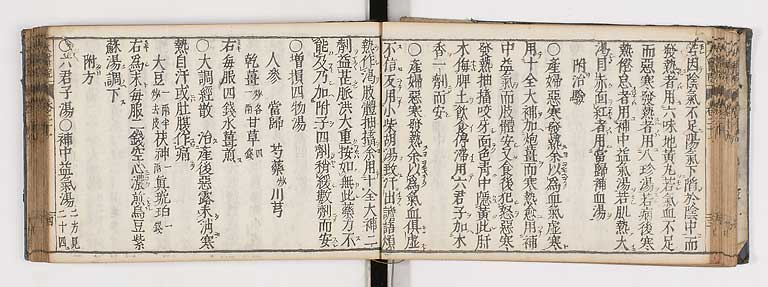 若因陰氣不足陽氣下陷於陰中而
發熱者用六味地黃丸若氣血不足
而惡寒發熱者用八珍湯若病後寒
熱倦怠者用補中益氣湯若肌熱大
渴目赤面紅者用當歸補血湯
附治驗
○產婦惡寒發熱余以爲血氣虛寒
用十全大補加炮薑而寒熱愈用補
中益氣而肢體安又食後犯怒惡寒
發熱抽搐咬牙面色青中隱黃此肝
木侮脾土飲食停滯用六君子加木
香一劑而安
○產婦惡寒發熱余以爲氣血俱虛
不信反用小柴胡湯致汗出譫語煩
熱作渴肢體抽搐余用十全大補二
劑益甚脈洪大重按如無此藥力不
能及乃加附子四劑稍緩數劑而安
○增損四物湯
人參 當歸 芍藥炒 川芎
乾薑炒各一兩 甘草四錢
右每服四錢水薑煎
○大調經散 治產後惡露未消寒
熱自汗或肚腹作痛
大豆炒去皮一兩半 茯神一兩 眞琥珀一錢
右爲末每服二錢空心濃煎烏豆紫
蘇湯調下
附方
○六君子湯○補中益氣湯二方見二十四